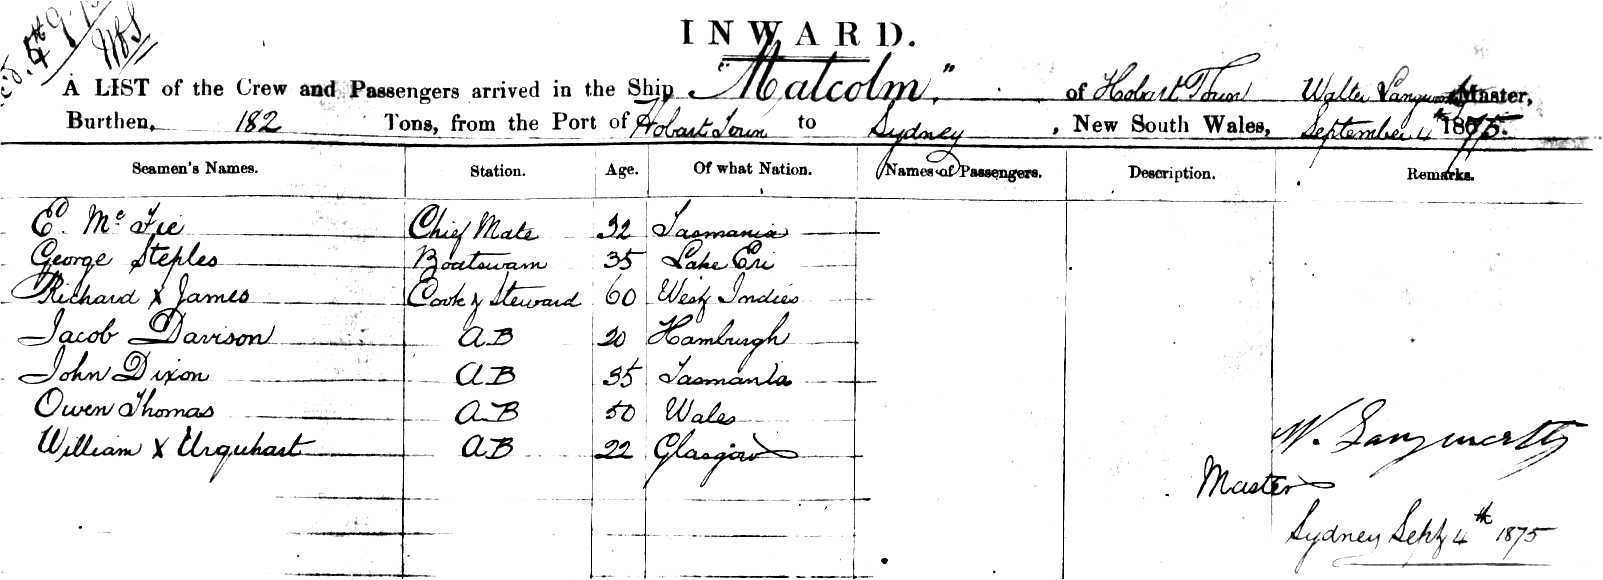 4th 9.
INWARD.
A LIST of the Crew and Passengers arrived in the Ship "Malcolm." of Hobart Town Walter Langworthy Master,
Burthen, 182 Tons, from the Port of Hobart Town to Sydney, New South Wales, September 4th 1875.
Seamen's Names. Station. Age. Of what Nation. Names of Passengers. Description. Remarks.
E. Mc Fie Chief Mate 32 Tasmania
George Steples Boatswain 35 Lake Eri
Richard X James Cook & Steward 60 West Indies
Jacob Davison AB 20 Hamburgh
John Dixon AB 35 Tasmania
Owen Thomas AB 50 Wales
William X Urquhart AB 22 Glasgow
W. Langworthy
Master
Sydney Sept 4th 1875